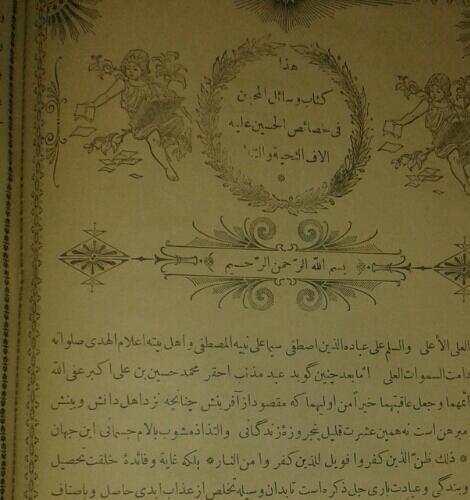 هذا
كتاب وسائل المحبين
فى خصائص الحسين عليه
الاف التحية والثناء
بسم الله الرّحمن الرّحيم
العلى الأعلى والسلم على عباده الذين اصطفى سيما على نبيه المصطفى واهل بيته اعلام الهدى صلواته
السموات العلى امّا بعد چنين گويد عبد مذنب احقر محمد حسين بن على اكبر عفى الله
وجعل عاقبتهما خيراً من اوليهما كه مقصود از آفرينش چنانچه نزد اهل دانش و بينش
مبرهن است نه همين عشرت قليل پنجروزۀ زندگانى والتذاذ مشوب بالام جسمانى اين جهان
* ذلك ظنّ الذين كفروا فويل للذين كفروا من النار * بلكه غاية وفائدۀ خلقت تحصيل
بندگى وعبادت بارى جل ذكره است تا بدان وسيله تخلص از عذاب ابدى حاصل وباصناف